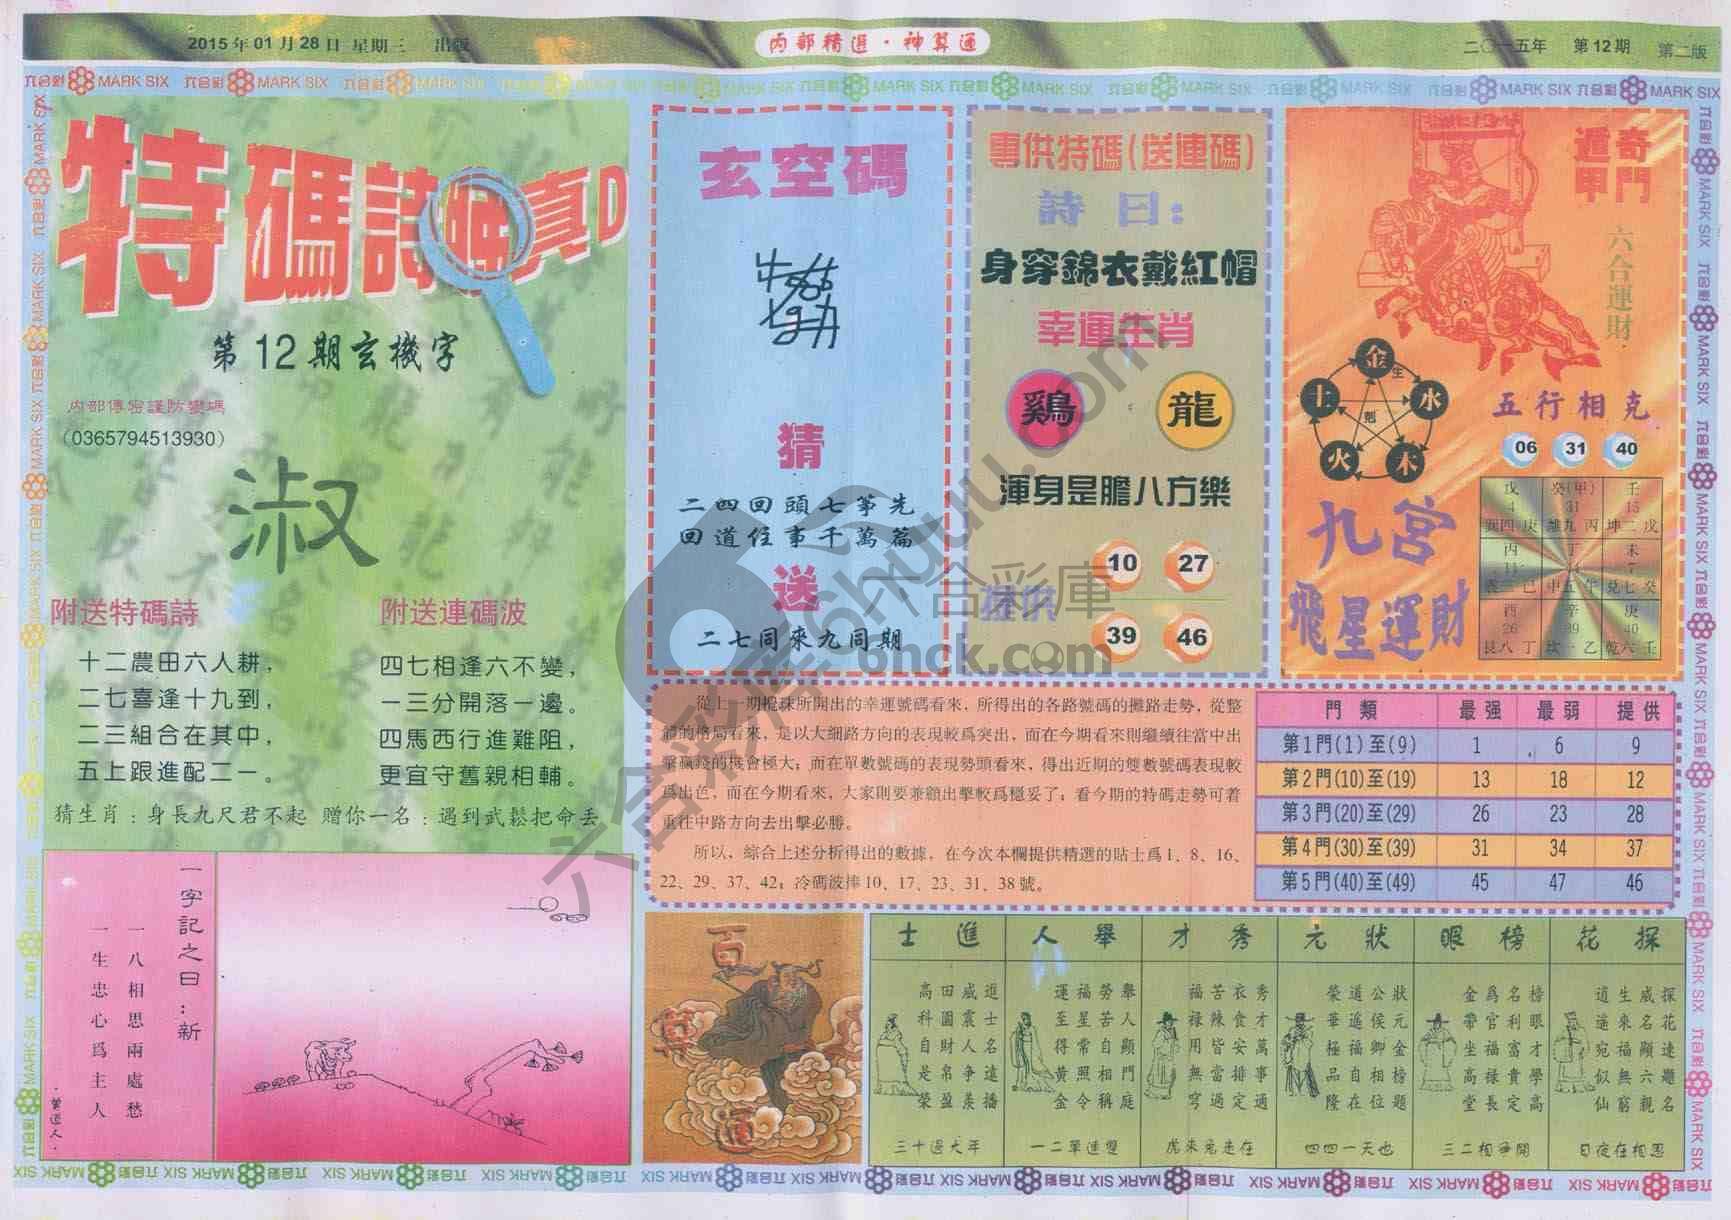 2015年01月28日 星期三 出版
內部精選·神算通
二〇一五年 第12期 第二版
六合彩 MARK SIX
特碼詩
真D
第12期玄機字
內部傳密謹防變碼
(0365794513930)
淑
附送特碼詩
十二農田六人耕,
二七喜逢十九到,
二三組合在其中,
五上跟進配二一。
附送連碼波
四七相逢六不變,
一三分開落一邊。
四馬西行進難阻,
更宜守舊親相輔。
猜生肖:身長九尺君不起 贈你一名:遇到武鬆把命丟
一字記之曰:新
一八相思兩處愁
一生忠心爲主人
玄空碼
猜
二四回頭七爭先
回道往事千萬篇
送
二七同來九同期
專供特碼(送連碼)
詩曰:
身穿錦衣戴紅帽
幸運生肖
鷄 龍
渾身是膽八方樂
提供
10 27
39 46
奇門
遁甲
六合運財
金 水 木 火 土
生
剋
五行相克
06 31 40
九宮
飛星運財
戊 癸(甲) 壬
4 31 13
巽四 庚 離九 丙 坤二 戊
丙 丁 未
申五午 兌七 癸
酉 辛 庚
26 39 40
艮八 丁 坎一乙 乾六 壬
從上一期攪珠所開出的幸運號碼看來，所得出的各路號碼的攤路走勢，從整
體的格局看來，是以大細路方向的表現較爲突出，而在今期看來則繼續往當中出
擊贏錢的機會極大；而在單數號碼的表現勢頭看來，得出近期的雙數號碼表現較
爲出色，而在今期看來，大家則要兼顧出擊較爲穩妥了；看今期的特碼走勢可着
重往中路方向去出擊必勝。
所以，綜合上述分析得出的數據，在今次本欄提供精選的貼士爲1、8、16、
22、29、37、42；冷碼波捧10、17、23、31、38號。
門類 最强 最弱 提供
第1門(1)至(9) 1 6 9
第2門(10)至(19) 13 18 12
第3門(20)至(29) 26 23 28
第4門(30)至(39) 31 34 37
第5門(40)至(49) 45 47 46
百
通
士進
進士名遠播
威震人爭羨
田園財帛盈
高科自是榮
三十過大年
人舉
舉人顯門庭
勞苦自相稱
福星常照令
運至得黃金
一二單進雙
才秀
秀才萬事通
衣食安排定
苦辣皆當過
福祿用無窮
虎來兔走在
元狀
狀元金榜題
公侯卿相位
道遙福自在
榮華極品隆
四四一天也
眼榜
榜眼才學高
名利富貴定
爲官福祿長
金帶坐高堂
三二相爭開
花探
探花達題名
威名顯六親
生來福無窮
逍遙宛似仙
日夜在相思
六合彩庫6htuku.com
六合彩庫
6hck.com